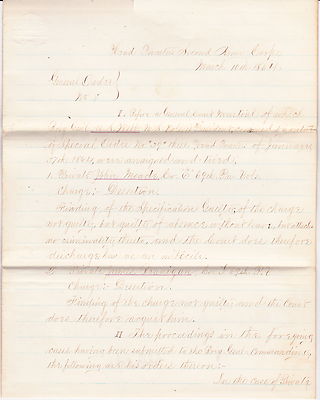 Head Quarters Second Army Corps
March 10th 1864.
General Orders
No 8
I. Before a General Court Martial of which
Brig Genl
of Special Orders No of these Head Quarters of January
1864, were arraigned and tried.
1. Private John Meade, Co. "E" 69th Pa Vols.
Charge:- Desertion.
Finding of the Specification Guilty, of the charge
not guilty, but guilty of absence without leave, but attach
no criminality thereto, and the Court does therefore
discharge him as an
2. Private Co. I
Charge:- Desertion.
Finding of the charge not guilty: and the Court
does therefore acquit him.
II The proceedings in the foregoing
cases having been submitted to the Brig. Genl. Commanding,
the following are his orders thereon:-
In the case of Private